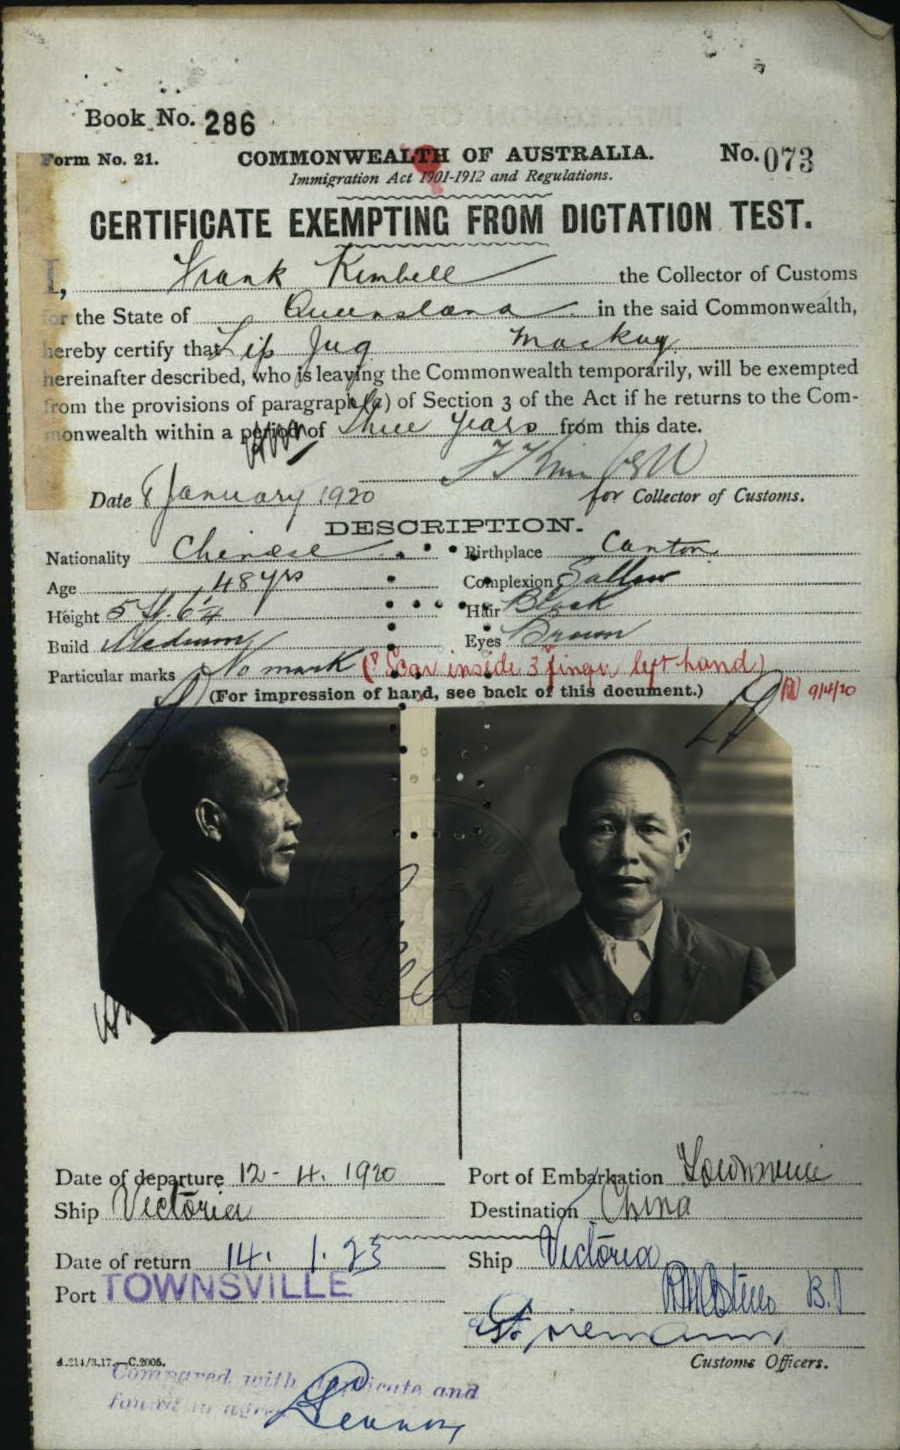 Book No. 286
Form No. 21. COMMONWEALTH OF AUSTRALIA. No. 073
Immigration Act 1901-1912 and Regulations.
CERTIFICATE EXEMPTING FROM DICTATION TEST.
I, Frank Kimbell the Collector of Customs
for the State of Queensland in the said Commonwealth,
hereby certify that Lip Jug Mackay
hereinafter described, who is leaving the Commonwealth temporarily, will be exempted
from the provisions of paragraph (a) of Section 3 of the Act if he returns to the Com-
monwealth within a period of Three Years from this date.
Date 8 January 1920 for Collector of Customs.
DESCRIPTION.
Nationality Chinese Birthplace Canton
Age 48 yrs Complexion Sallow
Height 5 ft. 6¼ Hair Black
Build Medium Eyes Brown
Particular marks No mark (? Scar inside 3 finger left hand)
(For impression of hand, see back of this document.) 9/4/20
Date of departure 12-4.1920 Port of Embarkation Townsville
Ship Victoria Destination China
Date of return 14.1.23 Ship Victoria
Port TOWNSVILLE
Customs Officers.
A.214/3.17.—C.2005.
Compared with duplicate and
found to agree